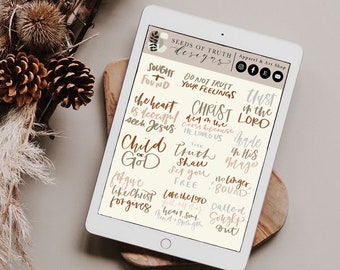 SEEDS OF TRUTH
designs
Apparel & Art Shop
SOUGHT
+
FOUND
DO NOT TRUST
YOUR FEELINGS
trust
in the
LORD
the heart
is deceitful
seek Jesus
CHRIST
died on the
cross because
HE LOVED US
Child
of
GOD
THE
Truth
shall
set you
FREE
Made
in His
Image
no longer
BOUND
forgive
like Christ
forgives
love the Lord
heart, soul,
mind + strength
Called
Sought
out